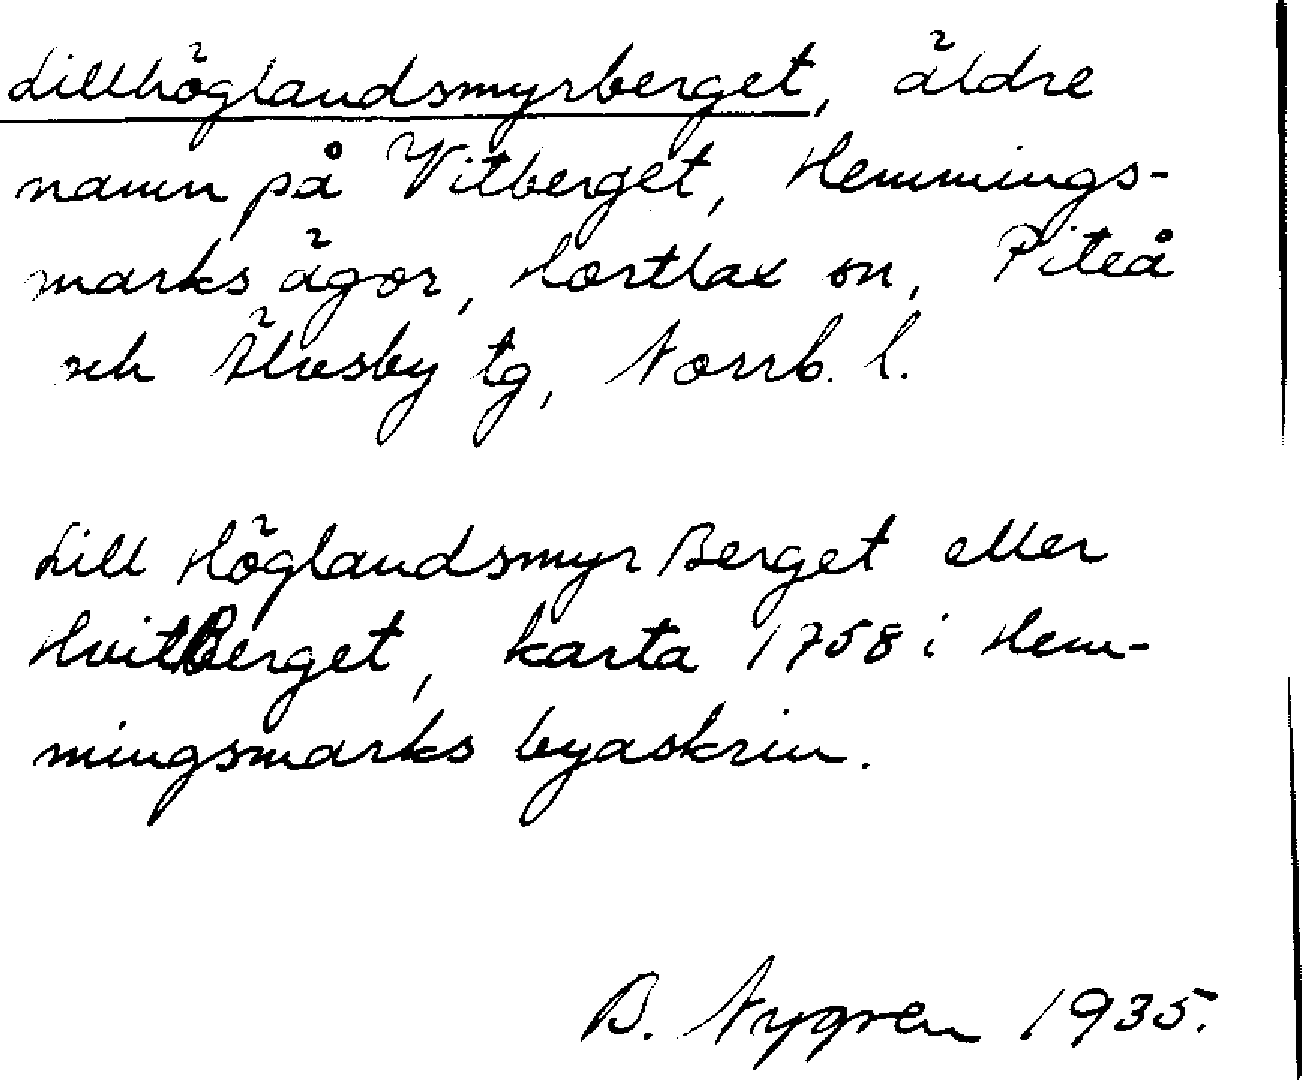 Lillhöglandsmyrberget, äldre
namn på Vitberget, Hemmings-
marks ägor, Hortlax sn, Piteå
och Älvsby tg, Norrb. l.
Lill Höglandsmyr Berget eller
HvitBerget, karta 1758 i Hem-
mingsmarks byaskrin.
B. Nygren 1935.